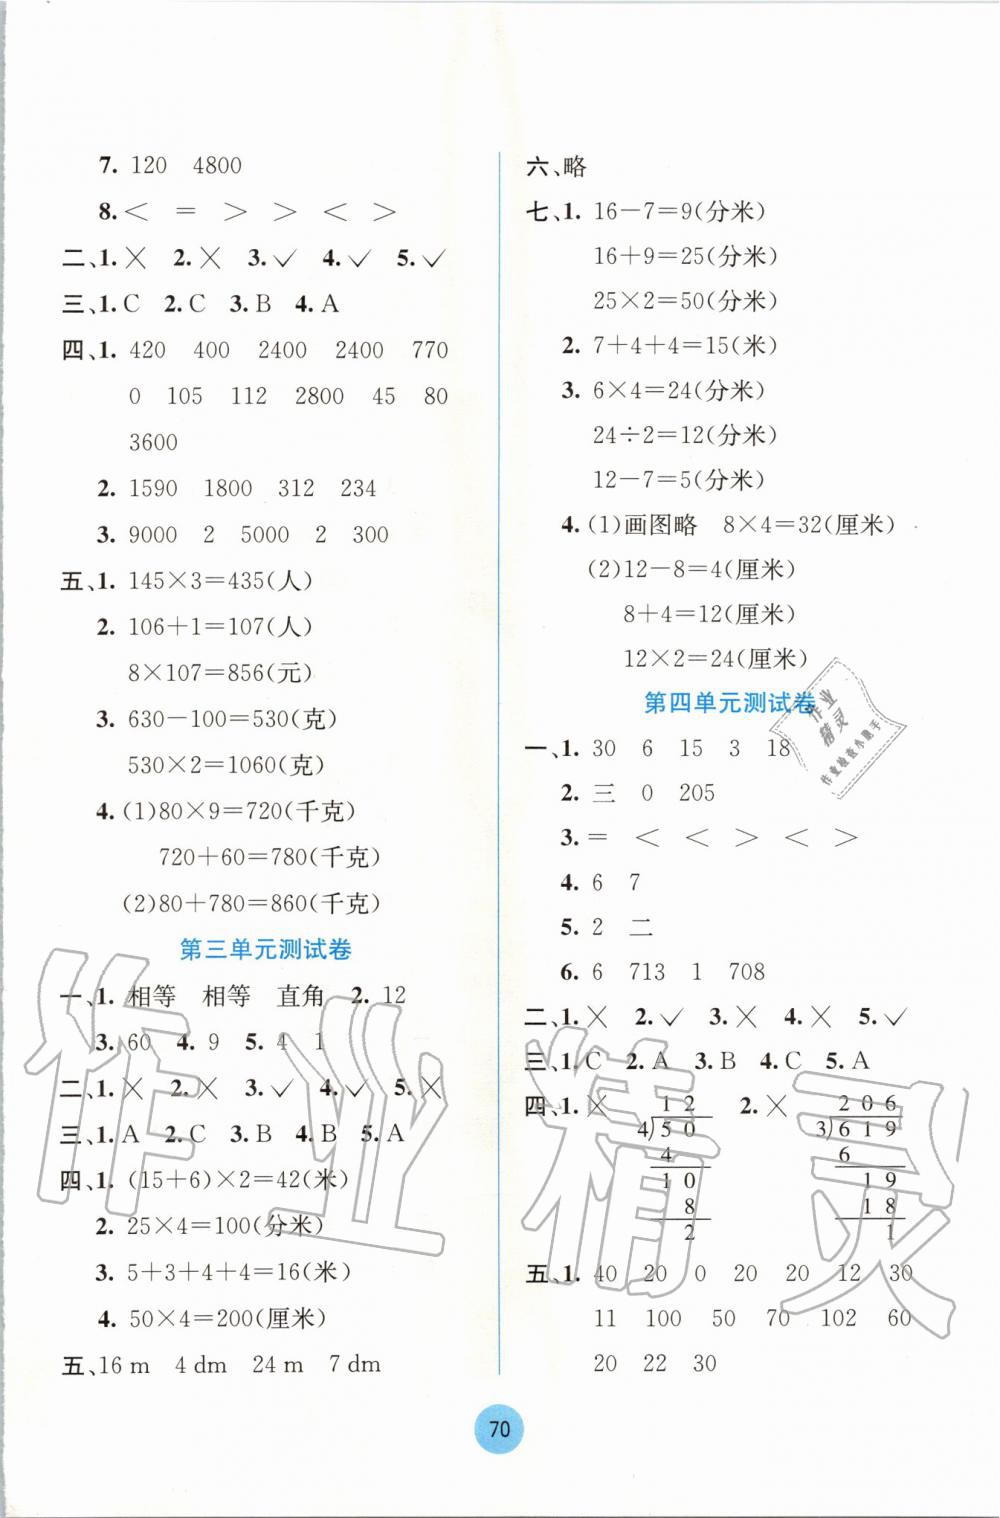 7. 120 4800
8. < = > > < >
二、1. × 2. × 3. ✓ 4. ✓ 5. ✓
三、1. C 2. C 3. B 4. A
四、1. 420 400 2400 2400 770
0 105 112 2800 45 80
3600
2. 1590 1800 312 234
3. 9000 2 5000 2 300
五、1. 145×3=435(人)
2. 106+1=107(人)
8×107=856(元)
3. 630-100=530(克)
530×2=1060(克)
4. (1)80×9=720(千克)
720+60=780(千克)
(2)80+780=860(千克)
第三单元测试卷
一、1. 相等 相等 直角 2. 12
3. 60 4. 9 5. 4 1
二、1. × 2. × 3. ✓ 4. ✓ 5. ×
三、1. A 2. C 3. B 4. B 5. A
四、1. (15+6)×2=42(米)
2. 25×4=100(分米)
3. 5+3+4+4=16(米)
4. 50×4=200(厘米)
五、16 m 4 dm 24 m 7 dm
六、略
七、1. 16-7=9(分米)
16+9=25(分米)
25×2=50(分米)
2. 7+4+4=15(米)
3. 6×4=24(分米)
24÷2=12(分米)
12-7=5(分米)
4. (1)画图略 8×4=32(厘米)
(2)12-8=4(厘米)
8+4=12(厘米)
12×2=24(厘米)
第四单元测试卷
一、1. 30 6 15 3 18
2. 三 0 205
3. = < < > < >
4. 6 7
5. 2 二
6. 6 713 1 708
二、1. × 2. ✓ 3. × 4. × 5. ✓
三、1. C 2. A 3. B 4. C 5. A
四、1. × 2. ×
12
4)50
4
10
8
2
206
3)619
6
19
18
1
五、1. 40 20 0 20 20 12 30
11 100 50 70 102 60
20 22 30
70
作业精灵
作业
精灵
作业检查小助手